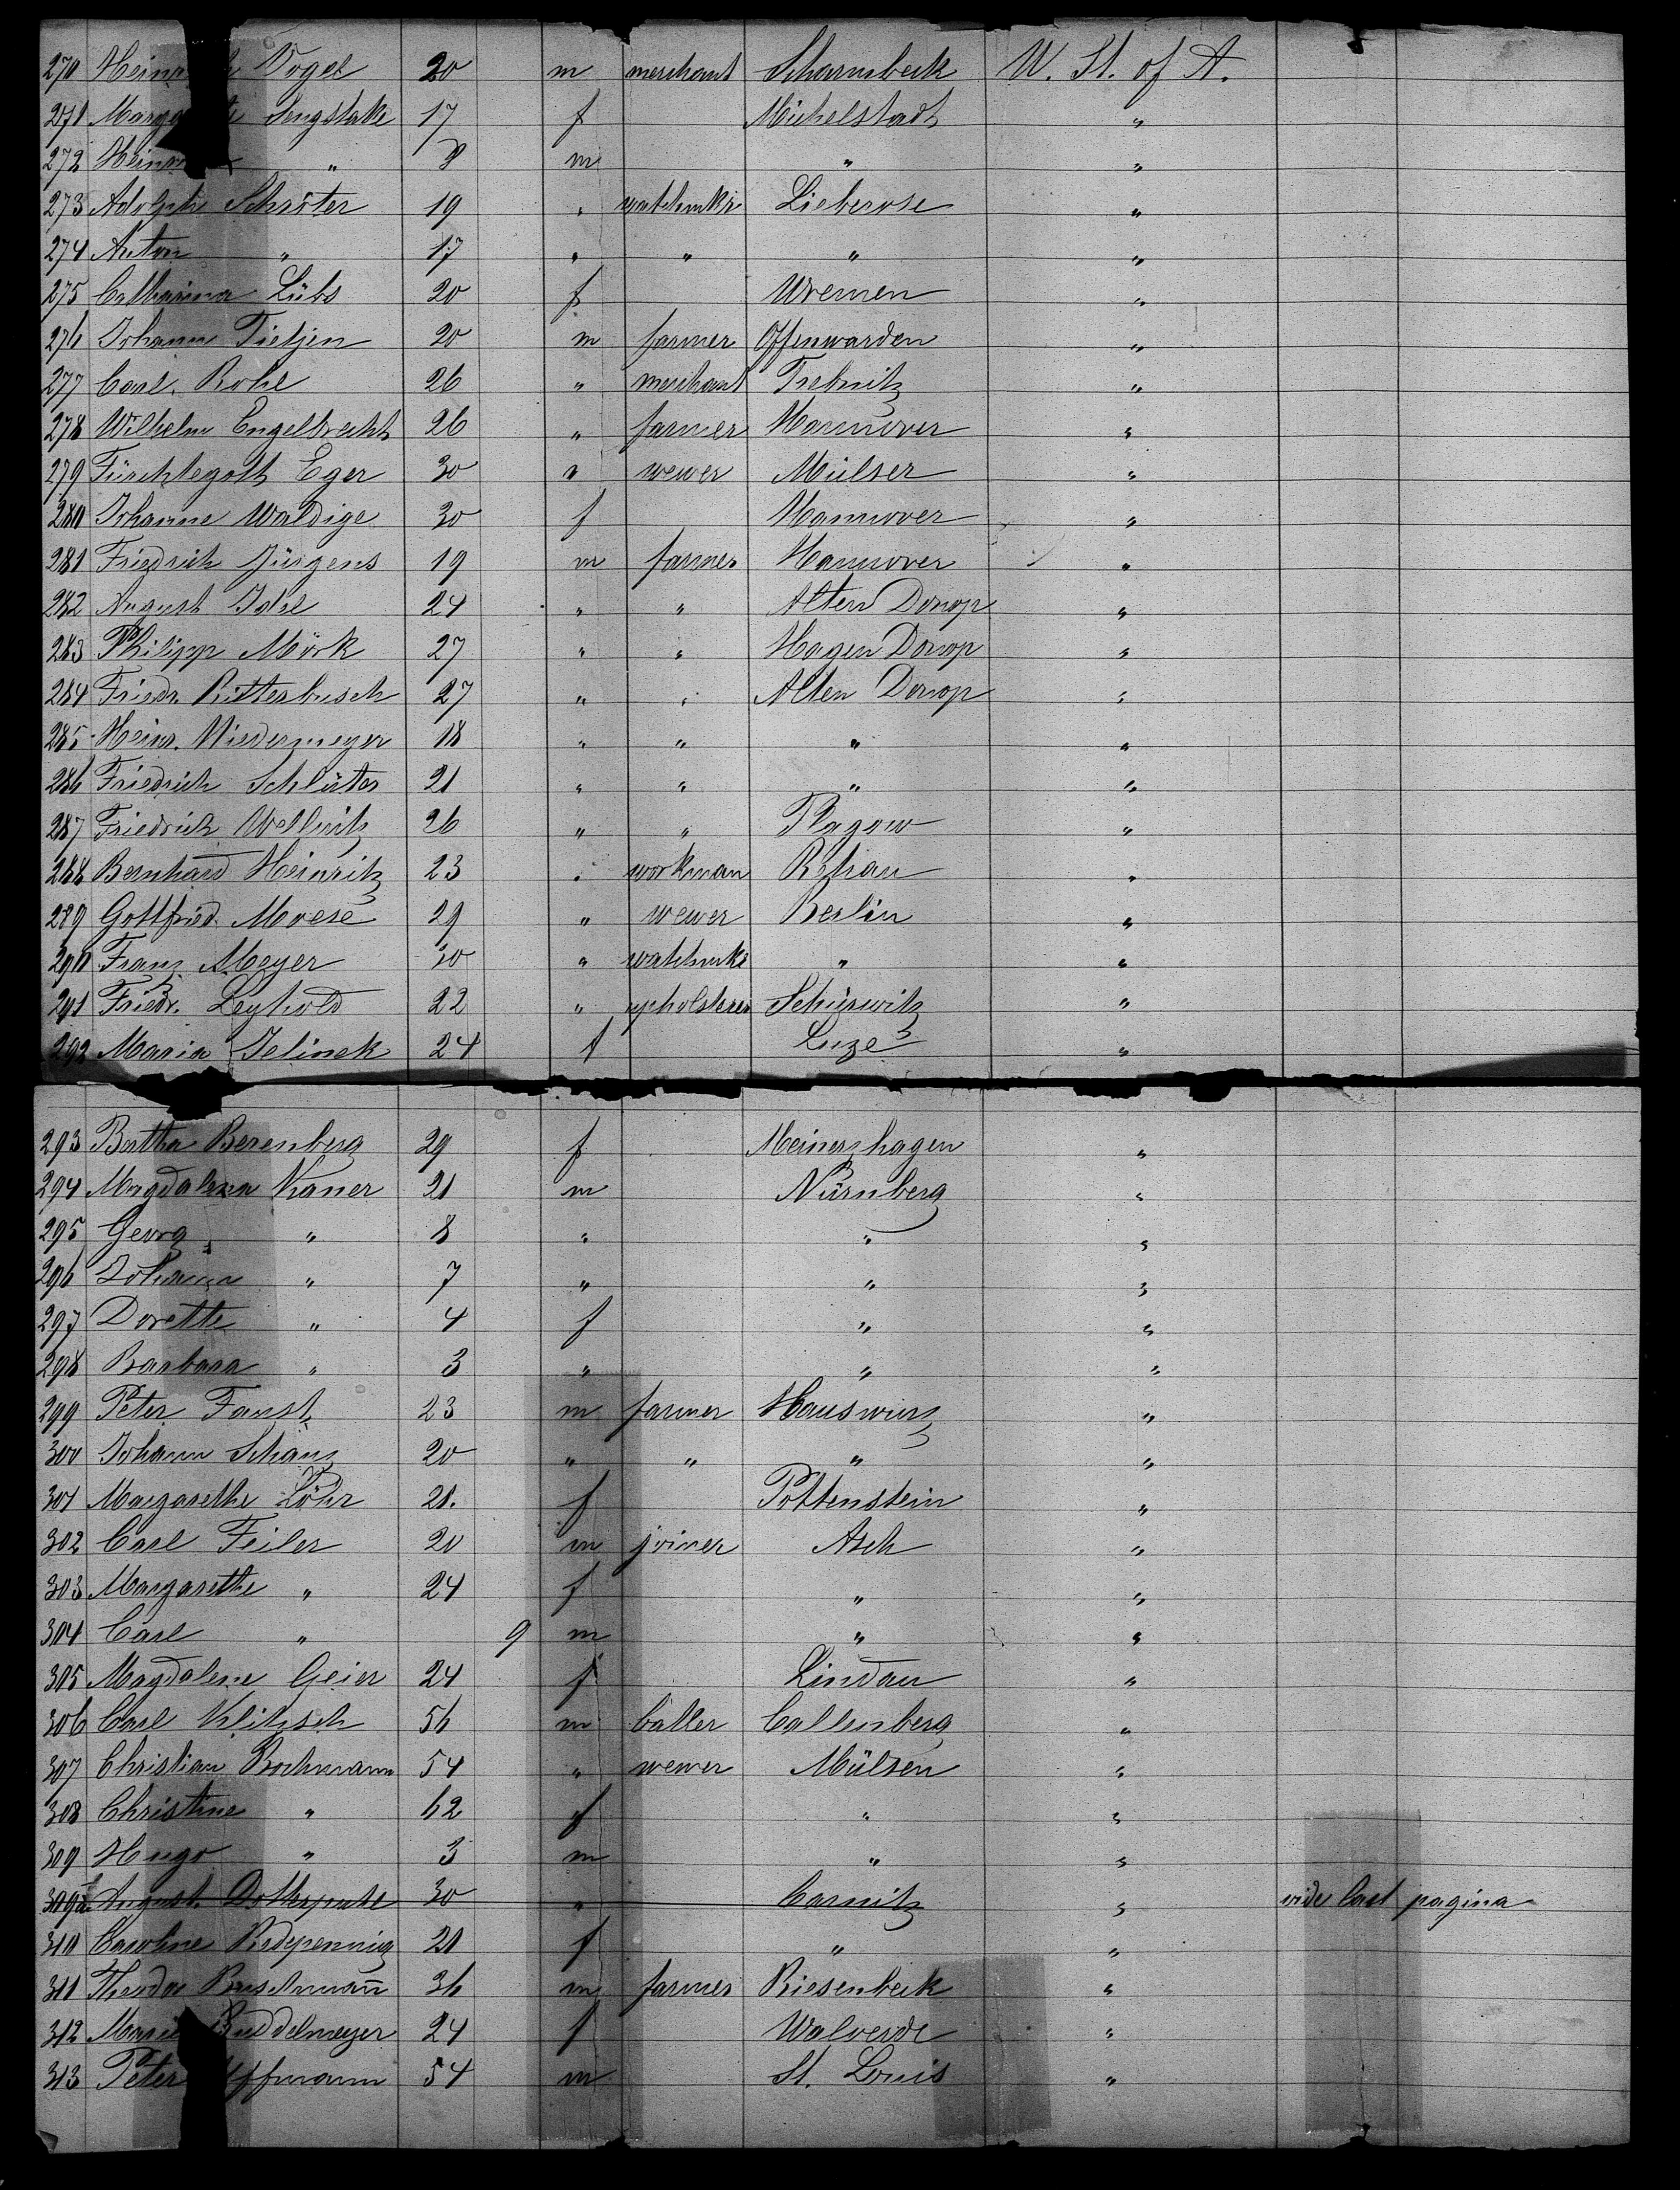 270 Heinrich Vogel 20 m merchant Scharmbeck U. St. of A.
271 Margarethe Sengstake 17 f Michelstadt "
272 Heinrich " m " "
273 Adolph Schröter 19 " watchmkr Lieberose "
274 Anton " 17 " " " "
275 Catharina Lübs 20 f Wremen "
276 Johann Tietjen 20 m farmer Offenwarden "
277 Carl Rohl 26 " merchant Trebnitz "
278 Wilhelm Engelbrecht 26 " farmer Hannover "
279 Fürchtegott Eger 30 " wewer Mülser "
280 Johanne Waldige 30 f Hannover "
281 Friedrich Jürgens 19 m farmer Hannover "
282 August Idel 24 " " Alten Donop "
283 Philipp Mörk 27 " " Hagen Donop "
284 Friedr. Ritterbusch 27 " " Alten Donop "
285 Heinr. Niedermeyer 18 " " " "
286 Friedrich Schlüter 21 " " " "
287 Friedrich Wellnitz 26 " " Plagow "
288 Bernhard Heinritz 23 " workman Rehau "
289 Gottfried Moese 29 " wewer Berlin "
290 Franz Meyer 30 " watchmkr " "
291 Friedr. Leyhold 22 " upholsterer Schirwitz "
292 Maria Jelinek 24 f Luze "
293 Bertha Berenberg 29 f Meinerzhagen "
294 Magdalena Kaner 21 m Nürnberg "
295 Georg " 8 " " "
296 Johann " 7 " " "
297 Dorette " 4 f " "
298 Barbara " 3 " " "
299 Peter Faust 23 m farmer Hauswurz "
300 Johann Schanz 20 " " " "
301 Margarethe Löhr 21. f Pottenstein "
302 Carl Feiler 20 m joiner Asch "
303 Margarethe " 24 f " "
304 Carl " 9 m " "
305 Magdalene Geier 24 f Lindau "
306 Carl Klitzsch 56 m Callenberg "
307 Christian Bochmann 54 " wewer Mülsen "
308 Christine " 62 f " "
309 Hugo " 3 m " "
309a August 30 " Carnitz " vide last pagina
310 Caroline Redepennig 21 f " "
311 Theodor Buschmann 36 m farmer Riesenbeck "
312 Marie Buddelmeyer 24 f Walverde "
313 Peter Hoffmann 54 m St. Louis "